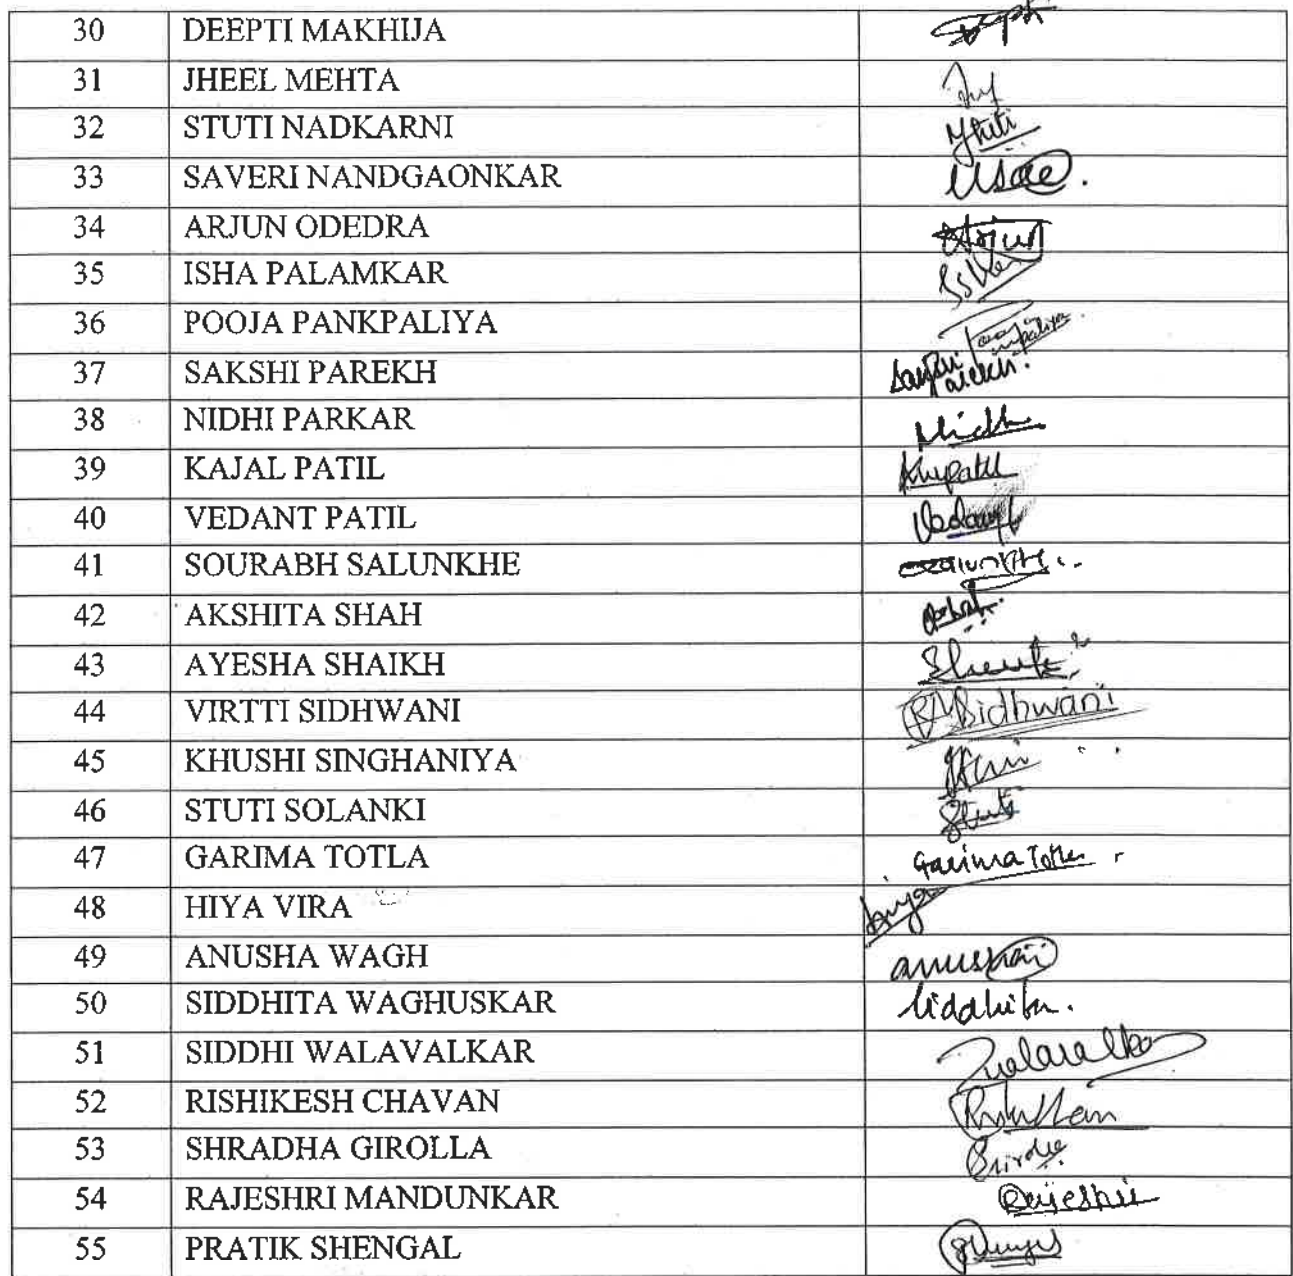 30 DEEPTI MAKHIJA
31 JHEEL MEHTA
32 STUTI NADKARNI
33 SAVERI NANDGAONKAR
34 ARJUN ODEDRA Arjun
35 ISHA PALAMKAR
36 POOJA PANKPALIYA
37 SAKSHI PAREKH
38 NIDHI PARKAR Nidhi
39 KAJAL PATIL
40 VEDANT PATIL Vedant
41 SOURABH SALUNKHE
42 AKSHITA SHAH
43 AYESHA SHAIKH
44 VIRTTI SIDHWANI Sidhwani
45 KHUSHI SINGHANIYA
46 STUTI SOLANKI Stuti
47 GARIMA TOTLA Garima Totla
48 HIYA VIRA
49 ANUSHA WAGH
50 SIDDHITA WAGHUSKAR Siddhita.
51 SIDDHI WALAVALKAR
52 RISHIKESH CHAVAN
53 SHRADHA GIROLLA
54 RAJESHRI MANDUNKAR Rajeshri
55 PRATIK SHENGAL